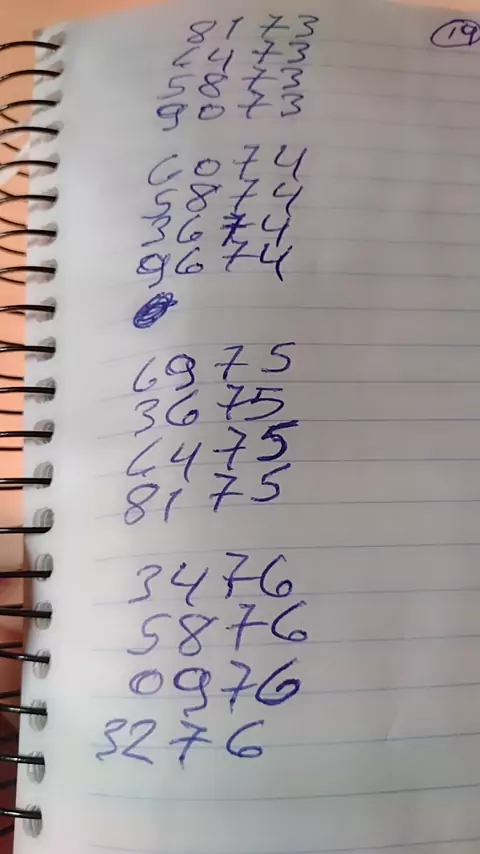 19
8173
6473
5873
9073
6074
5874
3674
9674
6975
3675
6475
8175
3476
5876
0976
3276